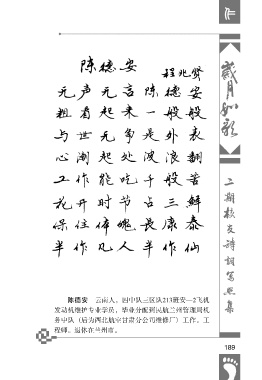 陈德安
程兆贤
无声无言陈德安
粗看起来一般般
与世无争是外表
心潮起处波浪翻
工作能吃千般苦
花开时节占三鲜
保住体魄长康泰
半作凡人半作仙
陈德安 云南人。四中队三区队213班安—2飞机
发动机维护专业学员。毕业分配到民航兰州管理局机
务中队（后为西北航空甘肃分公司维修厂）工作。工
程师。退休在兰州市。
岁月如歌
二期校友诗词写照集
189